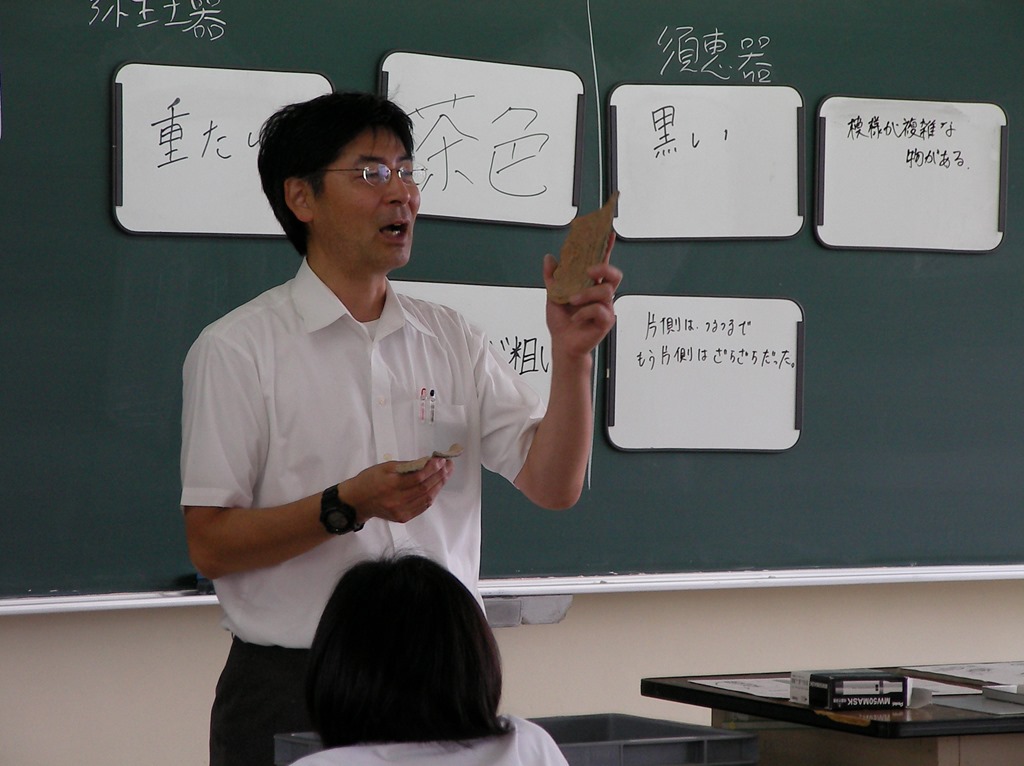 弥生土器
須恵器
重たい
茶色
黒い
模様が複雑な
物がある。
が粗い
片側は、つるつるで
もう片側はざらざらだった。
MW50MASK